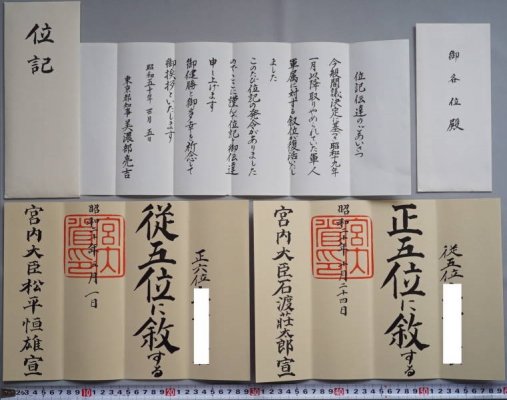 位記
御各位殿
位記伝達のごあいさつ
今般閣議決定に基づき昭和十九年
一月以降取りやめられていた軍人
軍属に対する叙位が復活いたし
ました
このたび位記の発令がありました
のでここに謹んで位記を御伝達
申し上げます
御健勝と御多幸を祈念して
御挨拶といたします
昭和五十年 月 五日
東京都知事美濃部亮吉
従五位
正五位に叙する
昭和 年 月二十四日
宮内大臣石渡荘太郎宣
正六位
従五位に叙する
昭和 年 月一日
宮内大臣松平恒雄宣
10 20 30 40 50